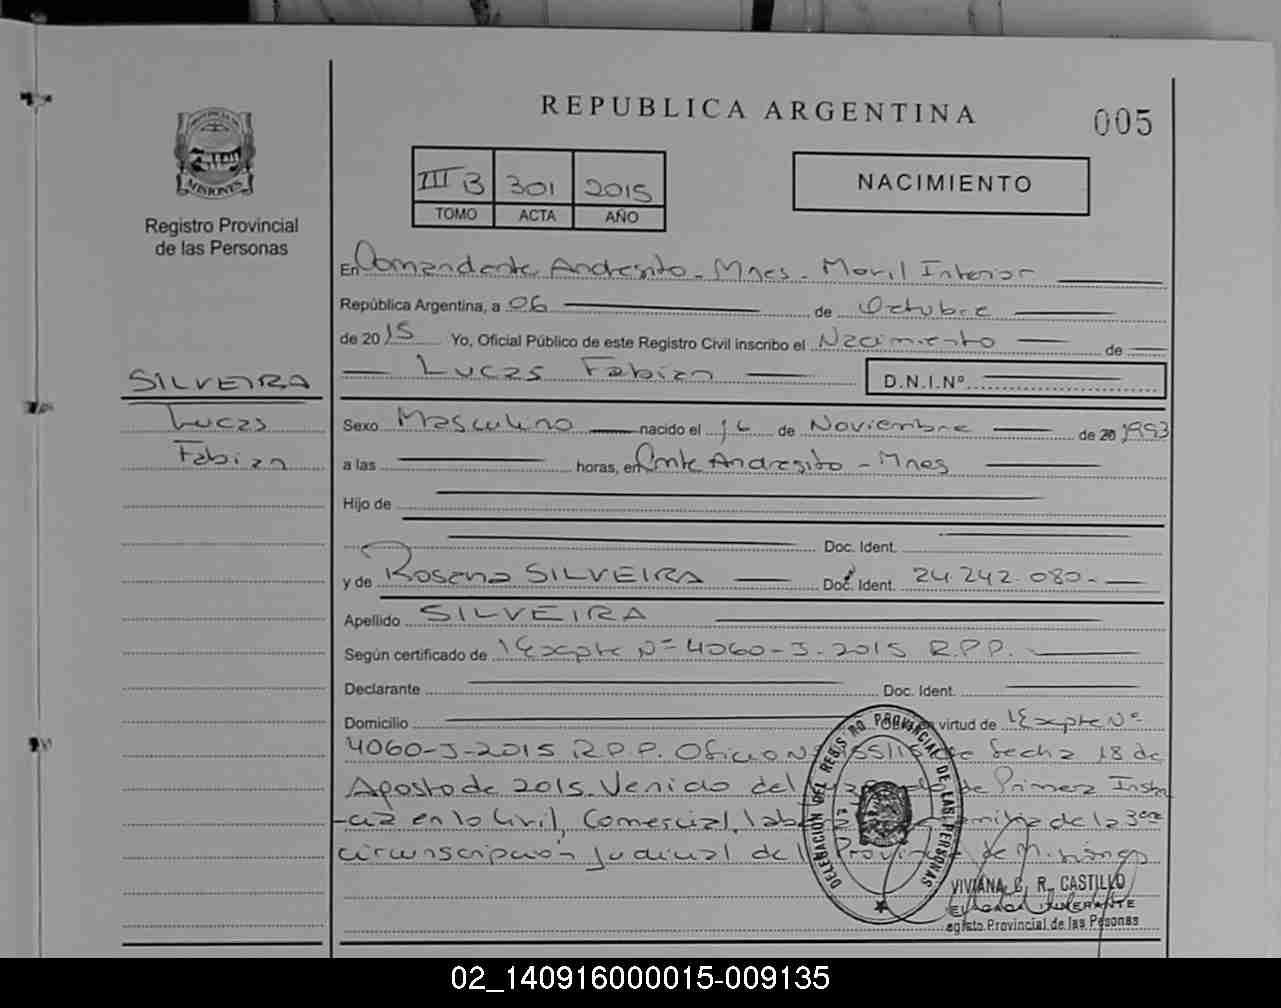 REPUBLICA ARGENTINA
005
PROVINCIA DE
MISIONES
Registro Provincial
de las Personas
III B 301 2015
TOMO ACTA AÑO
NACIMIENTO
En Comandante Andresito - Mnes - Movil Interior
República Argentina, a 06 de Octubre
de 2015 Yo, Oficial Público de este Registro Civil inscribo el Nacimiento de
Lucas Fabian D.N.I.Nº
SILVEIRA
Lucas
Fabian
Sexo Masculino nacido el 16 de Noviembre de 20 1993
a las horas, en Cmte Andresito - Mnes
Hijo de
Doc. Ident.
y de Rosana SILVEIRA Doc. Ident. 24.242.080.-
Apellido SILVEIRA
Según certificado de Expte Nº 4060-J-2015 R.P.P.
Declarante Doc. Ident.
Domicilio virtud de Expte Nº
4060-J-2015 R.P.P. Oficio Nº de fecha 18 de
Agosto de 2015. Venido del de Primera Instan
-cia en lo Civil, Comercial, de la 3era
circunscripción Judicial de la Provincia de Misiones
DELEGACION DEL REGISTRO PROVINCIAL DE LAS PERSONAS
VIVIANA C. R. CASTILLO
ITINERANTE
egisto Provincial de las Pesonas
02_140916000015-009135